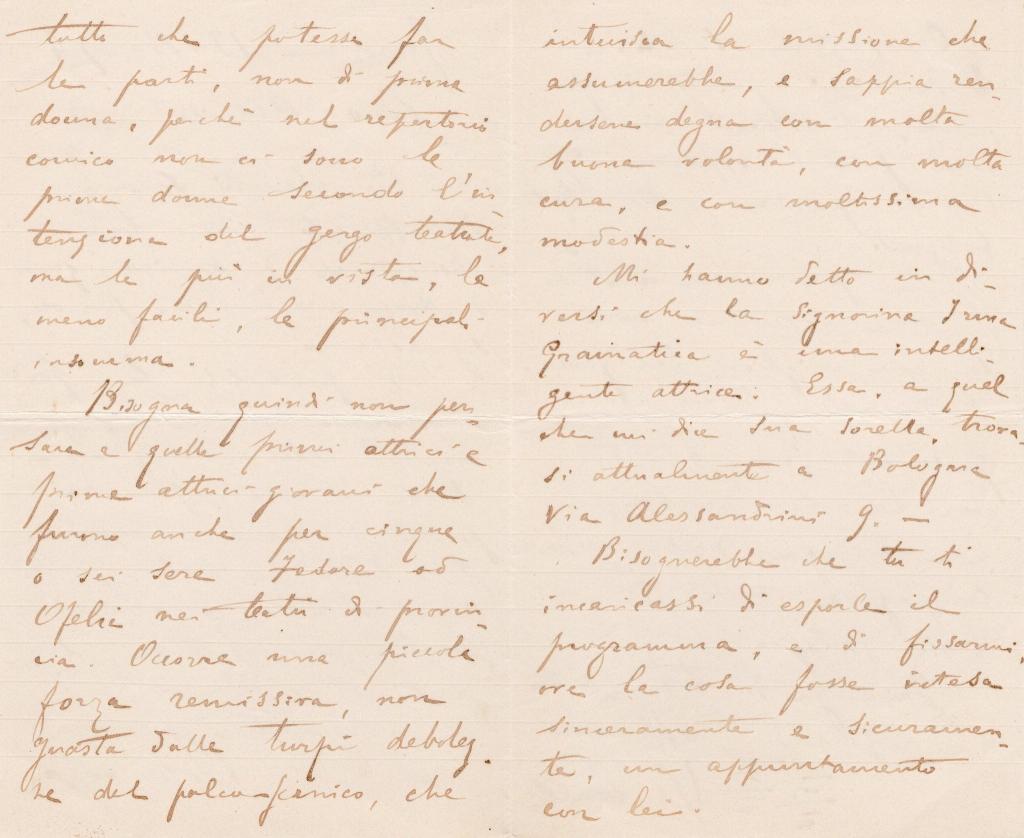 tutto che potesse far
le parti, non di prima
donna, perchè nel repertorio
comico non ci sono le
prime donne secondo l'in-
tenzione del gergo teatrale,
ma le più in vista, le
meno facili, le principali
insomma.
Bisogna quindi non pen-
sare a quelle prime attrici e
prime attrici giovani che
furono anche per cinque
o sei sere Fedore od
Ofelie nei teatri di provin-
cia. Occorre una piccola
forza remissiva, non
guasta dalle turpi debolez-
ze del palco-scenico, che
intuisca la missione che
assumerebbe, e sappia ren-
dersene degna con molta
buona volontà, con molta
cura, e con moltissima
modestia.
Mi hanno detto in di-
versi che la Signorina Irma
Gramatica è una intelli-
gente attrice. Essa, a quel
che mi dice sua sorella, trova-
si attualmente a Bologna
Via Alessandrini 9. —
Bisognerebbe che tu ti
incaricassi di esporle il
programma, e di fissarmi,
ove la cosa fosse intesa
sinceramente e sicuramen-
te, un appuntamento
con lei.